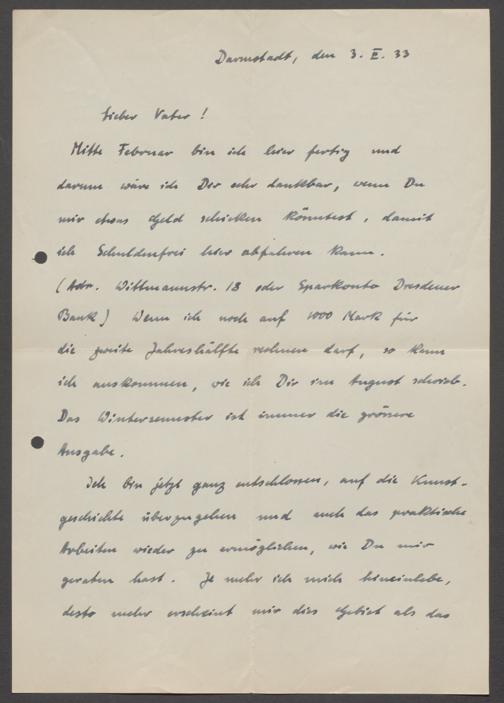 Darmstadt, den 3. II. 33
Lieber Vater!
Mitte Februar bin ich hier fertig und
darum wäre ich Dir sehr dankbar, wenn Du
mir etwas Geld schicken könntest, damit
ich Schuldenfrei hier abfahren kann.
(Adr. Wittmannstr. 18 oder Sparkonto Dresdener
Bank) Wenn ich noch auf 1000 Mark für
die zweite Jahreshälfte rechnen darf, so kann
ich auskommen, wie ich Dir im August schrieb.
Das Wintersemester ist immer die grössere
Ausgabe.
Ich bin jetzt ganz entschlossen, auf die Kunst-
geschichte überzugehen und auch das praktische
Arbeiten wieder zu ermöglichen, wie Du mir
geraten hast. Je mehr ich mich hineinlebe,
desto mehr erscheint mir dies Gebiet als das